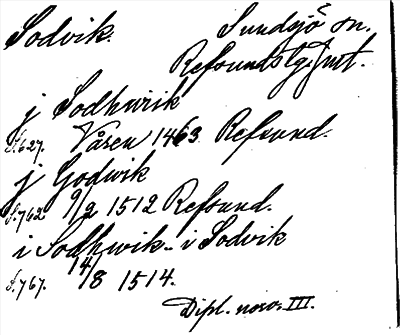 Sodvik. Sundsjö sn.
Refsunds tg. Jmt.
j Sodhwik
S. 627. Våren 1463 Refsund.
j Godwik
S. 762. 9/2 1512 Refsund.
i Sodhwik - i Sodvik
S. 767. 14/8 1514.
Dipl. norv. III.